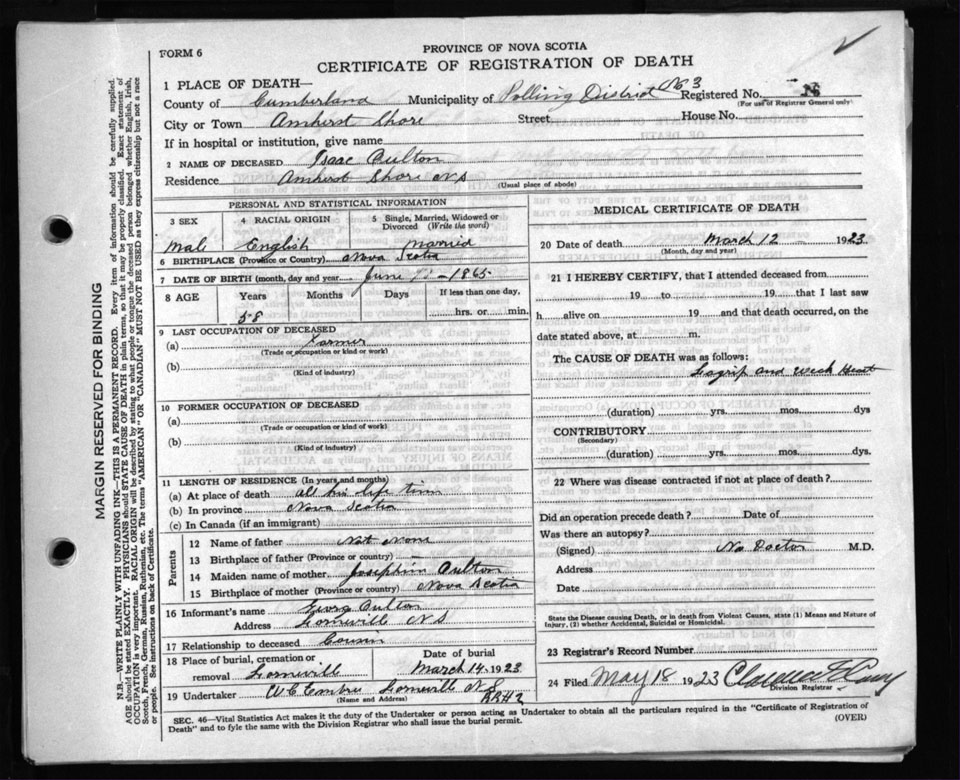 FORM 6
PROVINCE OF NOVA SCOTIA
CERTIFICATE OF REGISTRATION OF DEATH
1 PLACE OF DEATH—
County of Cumberland Municipality of Polling District No 3 Registered No.
(For use of Registrar General only)
City or Town Amherst Shore Street House No.
If in hospital or institution, give name
2 NAME OF DECEASED Isaac Oulton
Residence Amherst Shore N S
(Usual place of abode)
PERSONAL AND STATISTICAL INFORMATION
3 SEX 4 RACIAL ORIGIN 5 Single, Married, Widowed or Divorced (Write the word)
Male English Married
6 BIRTHPLACE (Province or Country) Nova Scotia
7 DATE OF BIRTH (month, day and year) June 1865
8 AGE Years Months Days If less than one day,
58 hrs. or min.
9 LAST OCCUPATION OF DECEASED
(a) Farmer
(Trade or occupation or kind or work)
(b)
(Kind of industry)
10 FORMER OCCUPATION OF DECEASED
(a)
(Trade or occupation or kind or work)
(b)
(Kind of industry)
11 LENGTH OF RESIDENCE (In years and months)
(a) At place of death all his life time
(b) In province Nova Scotia
(c) In Canada (if an immigrant)
Parents
12 Name of father Not None
13 Birthplace of father (Province or country) —
14 Maiden name of mother Josephin Oulton
15 Birthplace of mother (Province or country) Nova Scotia
16 Informant's name Georg Oulton
Address Lorneville N S
17 Relationship to deceased Cousin
18 Place of burial, cremation or removal Lorneville
Date of burial
March 14 1923
19 Undertaker W C Embree Lorneville N S
RR#2
(Name and Address)
MEDICAL CERTIFICATE OF DEATH
20 Date of death March 12 1923
(Month, day and year)
21 I HEREBY CERTIFY, that I attended deceased from
19 to 19 that I last saw
h alive on 19 and that death occurred, on the
date stated above, at m.
The CAUSE OF DEATH was as follows:
Lagrip and Weak Heart
(duration) yrs. mos. dys
CONTRIBUTORY
(Secondary)
(duration) yrs. mos. dys.
22 Where was disease contracted if not at place of death?
Did an operation precede death? Date of
Was there an autopsy?
(Signed) No Doctor M.D.
Address
Date
State the Disease causing Death, or in death from Violent Causes, state (1) Means and Nature of
Injury, (2) whether Accidental, Suicidal or Homicidal.
23 Registrar's Record Number
24 Filed May 18 1923
Division Registrar
SEC. 46—Vital Statistics Act makes it the duty of the Undertaker or person acting as Undertaker to obtain all the particulars required in the "Certificate of Registration of
Death" and to fyle the same with the Division Registrar who shall issue the burial permit.
(OVER)
MARGIN RESERVED FOR BINDING
N.B.—WRITE PLAINLY WITH UNFADING INK—THIS IS A PERMANENT RECORD. Every item of information should be carefully supplied.
AGE should be stated EXACTLY. PHYSICIANS should STATE CAUSE OF DEATH in plain terms, so that it may be properly classified. Exact statement of
OCCUPATION is very important. RACIAL ORIGIN will be described by stating to what people or tongue the deceased person belonged, whether English, Irish,
Scotch, French, German, Russian, Ruthenian, etc. The terms "AMERICAN" or "CANADIAN" MUST NOT BE USED as they express citizenship but not a race
or people. See instructions on back of Certificate.